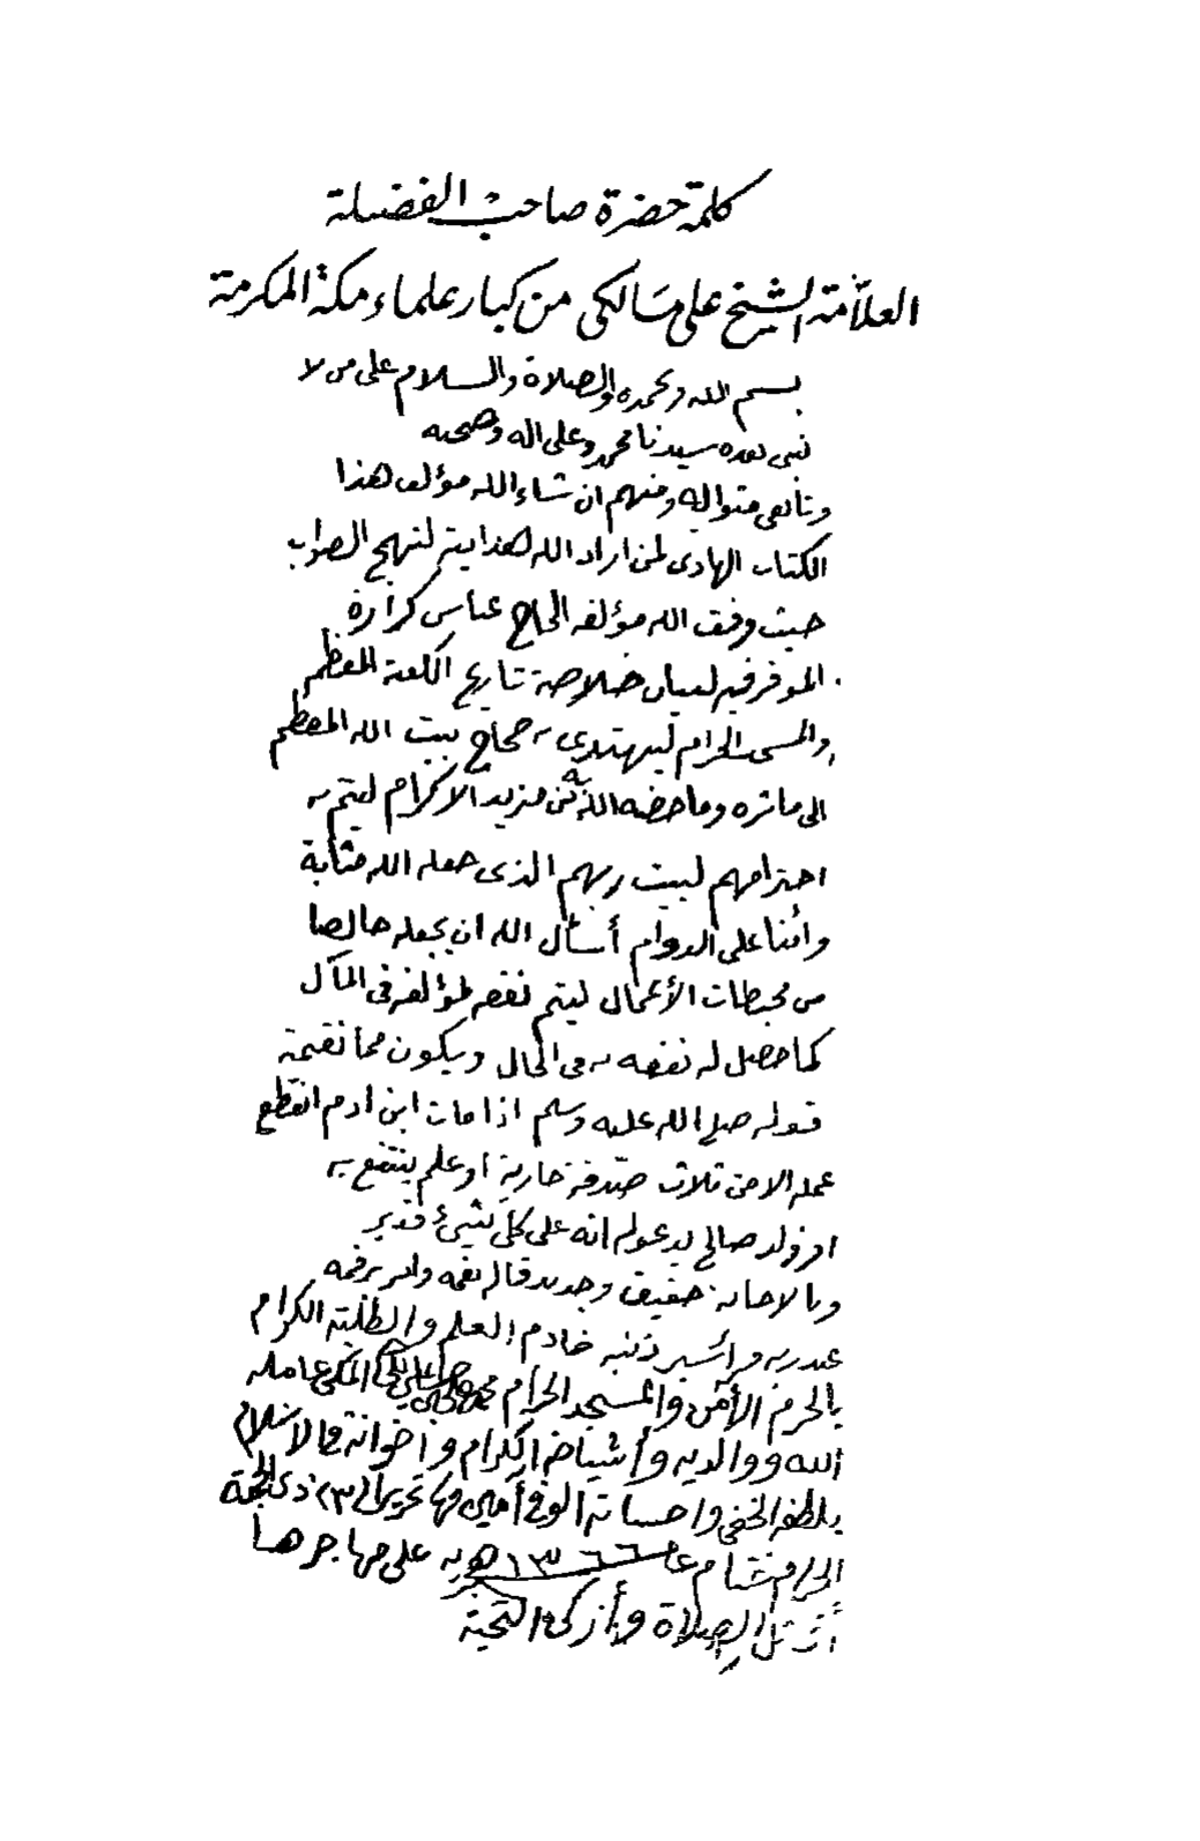 كلمة حضرة صاحب الفضيلة
العلامة الشيخ على مالكى من كبار علماء مكة المكرمة
بسم الله وبحمده والصلاة والسلام على من لا
نبى بعده سيدنا محمد وعلى اله وصحبه
وتابعى منواله ومنهم ان شاء الله مؤلف هذا
الكتاب الهادى لمن اراد الله هدايته لنهج الصواب
حيث وفق الله مؤلفه الحاج عباس كرارة
الموفر فيه لبيان خلاصة تاريخ الكعبة المعظم
والمسجد الحرام ليهتدى به حجاج بيت الله المعظم
الى ماثره وما خصه الله به من مزيد الاكرام ليتم به
احترامهم لبيت ربهم الذى جعله الله مثابة
وأمنا على الدوام أسأل الله ان يجعله خالصا
من محبطات الأعمال ليتم نفعه لمؤلفه فى المآل
كما حصل له نفعه به فى الحال ويكون مما
قوله صلى الله عليه وسلم اذا مات ابن ادم انقطع
عمله الا من ثلاث صدقة جارية او علم ينتفع به
او ولد صالح يدعو له انه على كل شيئ قدير
وبالاجابة حقيق وجدير قاله بفمه وامر برقمه
عبد ربه وأسير ذنبه خادم العلم والطلبة الكرام
بالحرم الأمن والمسجد الحرام محمد على المالكى المكى عامله
الله ووالديه وأشياخه الكرام واخوانه فى الاسلام
بلطفه الخفى واحسانه الوفى أمين تحريرا فى ٢٣ ذى الحجة
الحرام ختام عام ١٣٦٦ هجريه على مهاجرها
الصلاة وأزكى التحية